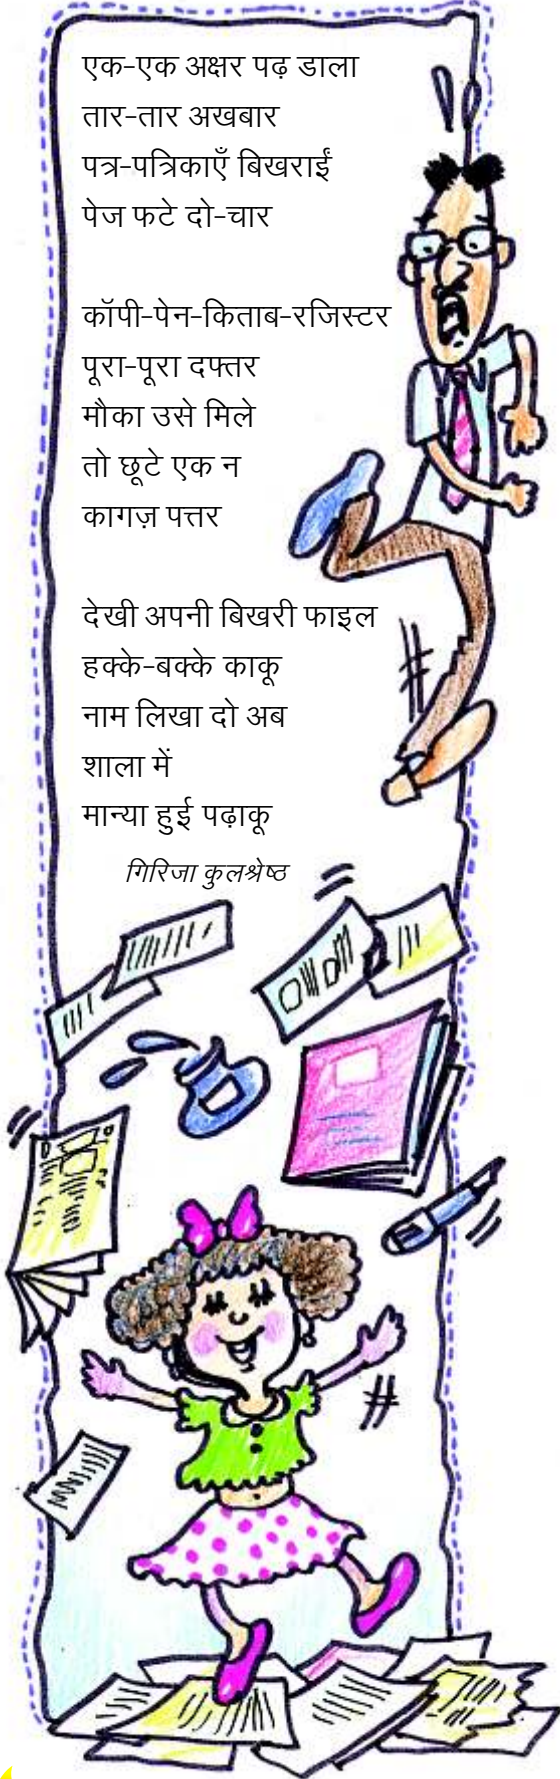 एक-एक अक्षर पढ़ डाला
तार-तार अखबार
पत्र-पत्रिकाएँ बिखराईं
पेज फटे दो-चार

कॉपी-पेन-किताब-रजिस्टर
पूरा-पूरा दफ्तर
मौका उसे मिले
तो छूटे एक न
कागज़ पत्तर

देखी अपनी बिखरी फाइल
हक्के-बक्के काकू
नाम लिखा दो अब
शाला में
मान्या हुई पढ़ाकू
गिरिजा कुलश्रेष्ठ